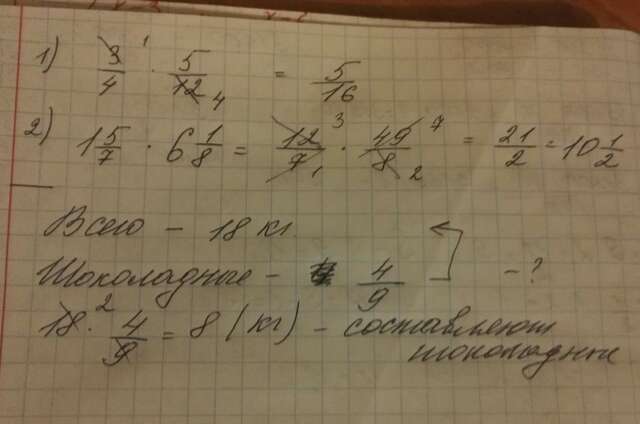 1) 3/4 · 5/12 = 5/16
1 4
2) 1 5/7 · 6 1/8 = 12/7 · 49/8 = 21/2 = 10 1/2
3 1 7 2
Всего – 18 кг.
Шоколадные – 4/9 – ?
18 · 4/9 = 8 (кг) – составляют
2
шоколадные